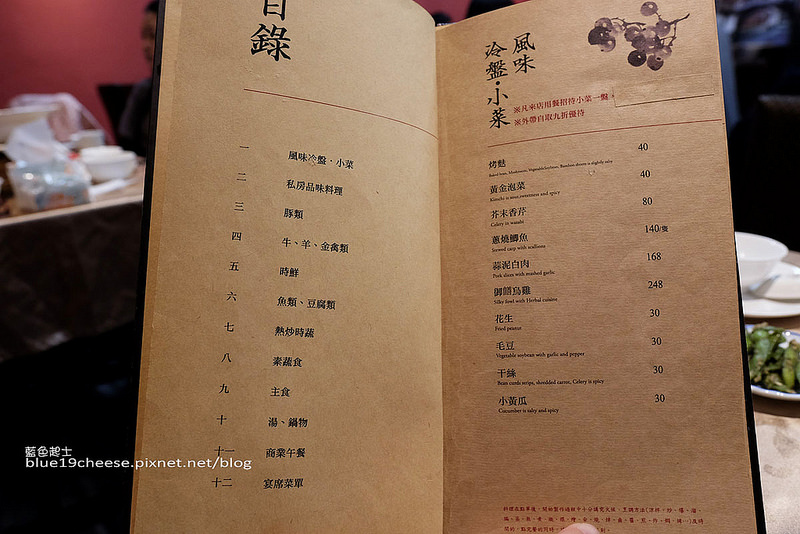 目錄
一 風味冷盤．小菜
二 私房品味料理
三 豚類
四 牛、羊、金禽類
五 時鮮
六 魚類、豆腐類
七 熱炒時蔬
八 素蔬食
九 主食
十 湯、鍋物
十一 商業午餐
十二 宴席菜單
風味
冷盤．小菜
※凡來店用餐招待小菜一盤，
※外帶自取九折優待
烤麩 40
黃金泡菜 40
Kimchi is sour,sweetness and spicy
芥末香芹 80
Celery in wasabi
蔥燒鯽魚 140/隻
Stewed carp with scallions
蒜泥白肉 168
Pork slices with mashed garlic
御膳烏雞 248
Silky fowl with Herbal cuisine
花生 30
Fried peanut
毛豆 30
Vegetable soybean with garlic and pepper
干絲 30
Bean curds strips, shredded carrot, Celery is spicy
小黃瓜 30
Cucumber is salty and spicy
藍色起士
blue19cheese.pixnet.net/blog